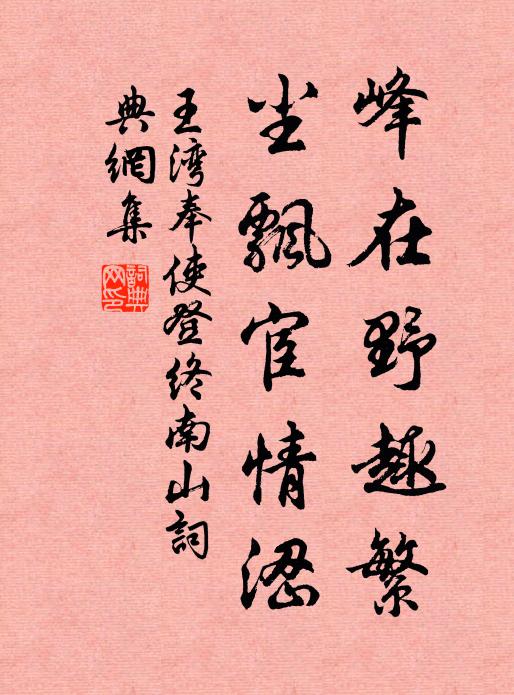 峰在野趣繁
尘飄宦情涩
王湾奉使登终南山詞
典網集
詞典
网印